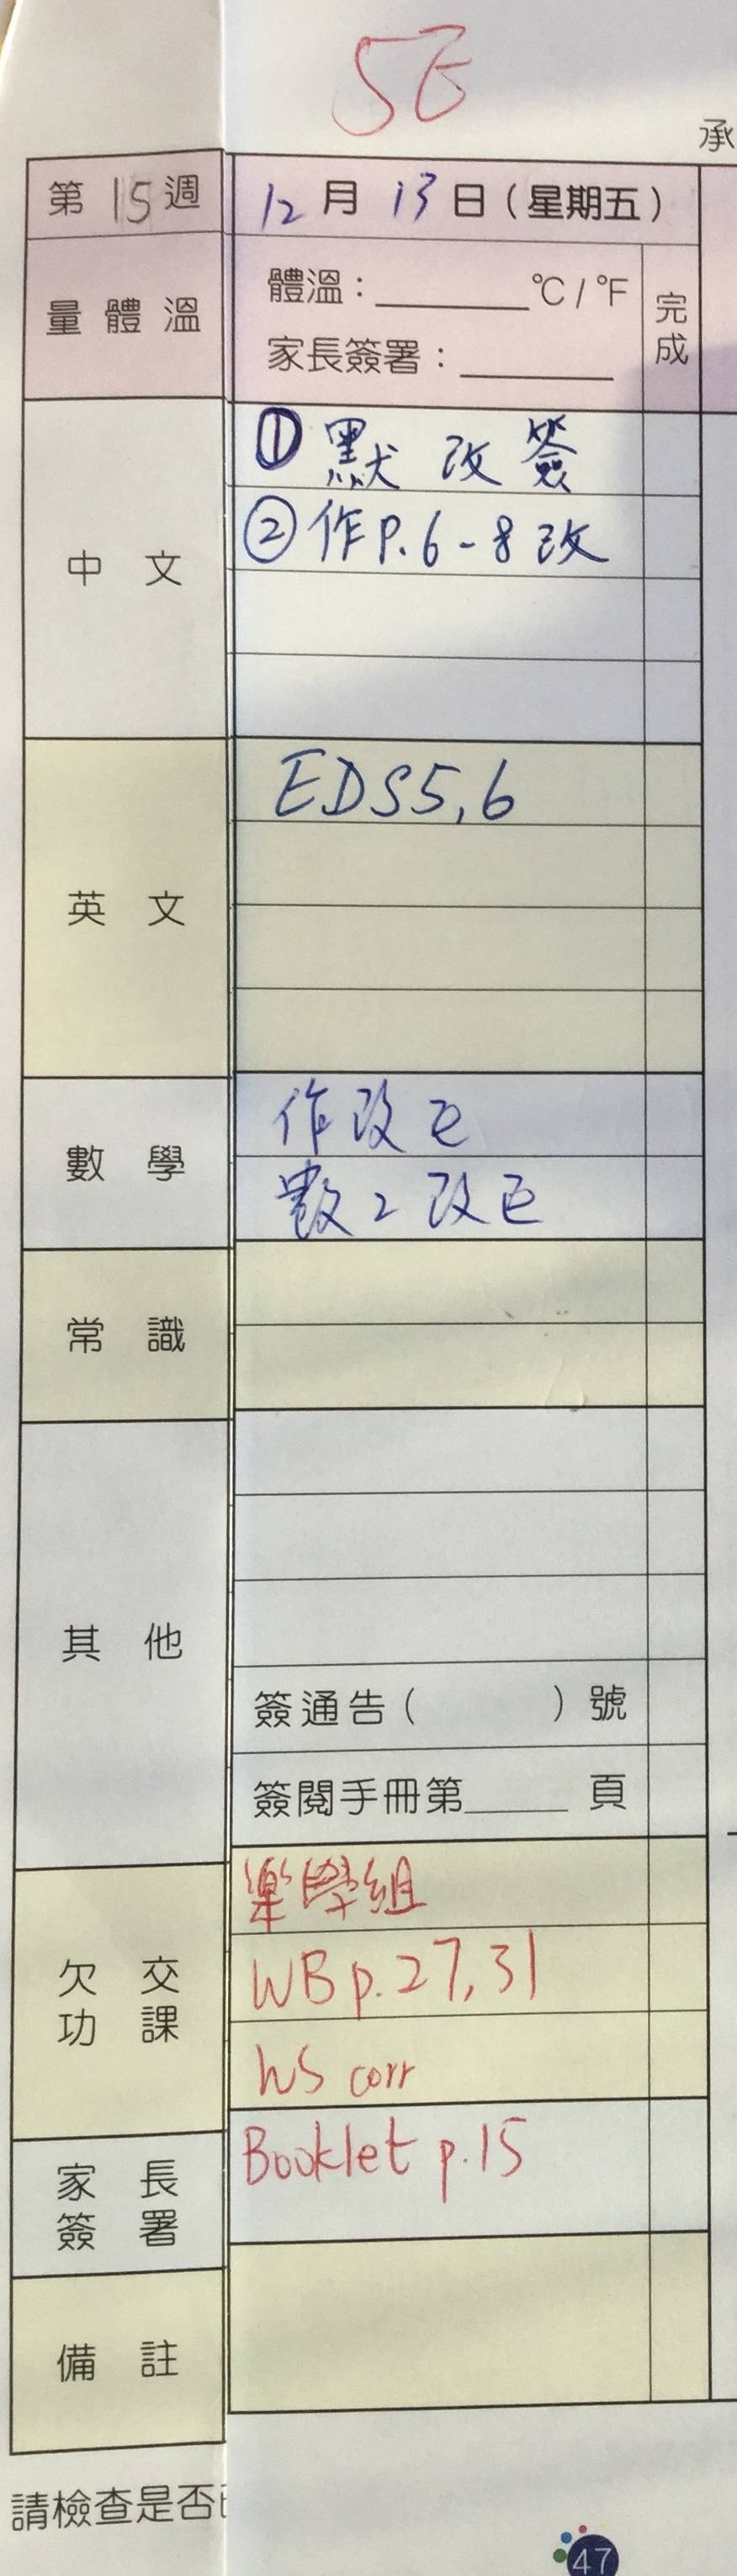 5E
承
第15週
12月13日(星期五)
量體溫
體溫：______°C / °F
家長簽署：______
完成
中文
① 默 改 簽
② 作P.6-8改
英文
EDS5,6
數學
作改已
數2改已
常識
其他
簽通告(      )號
簽閱手冊第____頁
欠交功課
樂學組
WB p.27,31
WS corr
家長簽署
Booklet p.15
備註
請檢查是否
47